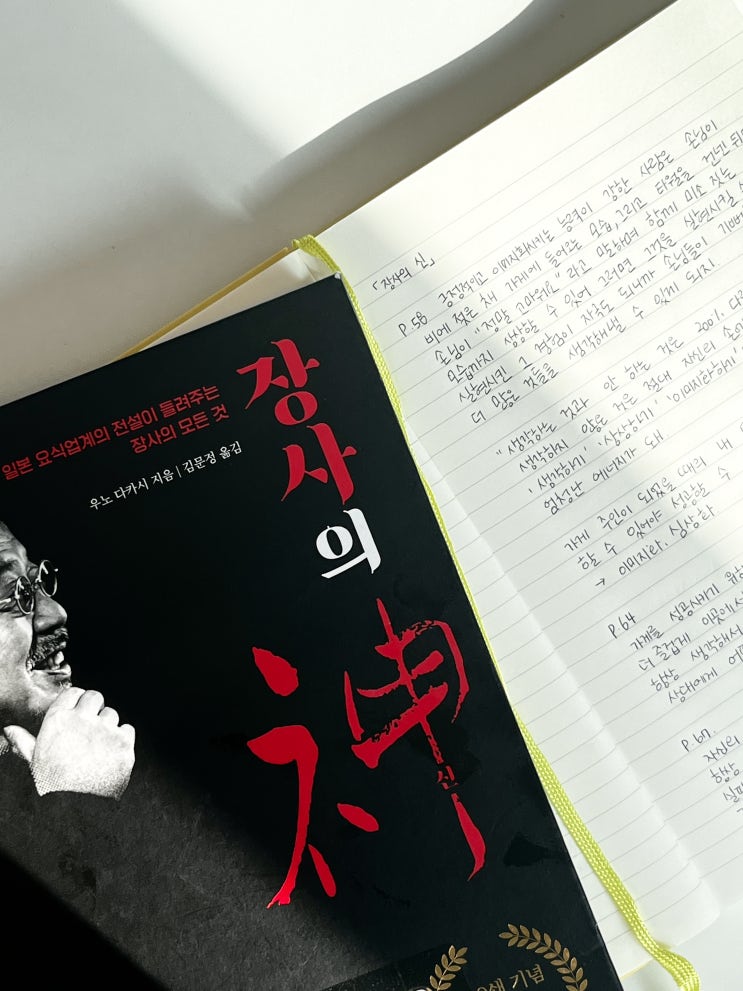 일본 요식업계의 전설이 들려주는
장사의 모든 것
우노 다카시 지음 | 김문정 옮김
장사의
神
신
기념
「장사의 신」
P.58 긍정적이고 이미지화시키는 능력이 강한 사람은 손님이
비에 젖은 채 가게에 들어오는 모습, 그리고 타월을 건넨 뒤
손님이 "정말 고마워요" 라고 말하며 함께 미소 짓는
모습까지 상상할 수 있어 그러면 그것을 실현시킬
실현시킨 그 경험이 자극도 되니까 손님들이 기뻐
더 많은 것들을 생각해낼 수 있게 되지
"생각하는 것과 안 하는 것은 200%
생각하지 않은 것은 절대 자신의
'생각하기' '상상하기' '이미지화하기'
엄청난 에너지가 돼
가게 주인이 되었을 때의 내
할 수 있어야 성공할 수
→ 이미지화. 심상화
P.64
가게를 성공시키기 위해
더 즐겁게 이곳에서
항상 생각해서
상대에게
P.67.
자신의
항상